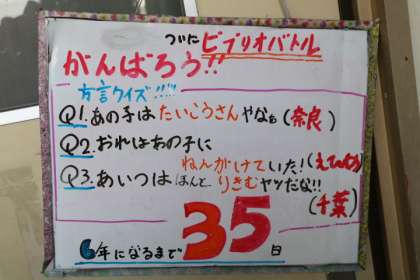 ついに ビブリオバトル
がんばろう!!
方言クイズ!!!!
Q1. あの子は たいこうさん やなぁ (奈良)
Q2. おれはあの子に
ねんがけていた!
Q3. あいつは ほんと りきむ ヤツだな!! (千葉)
6年になるまで 35日